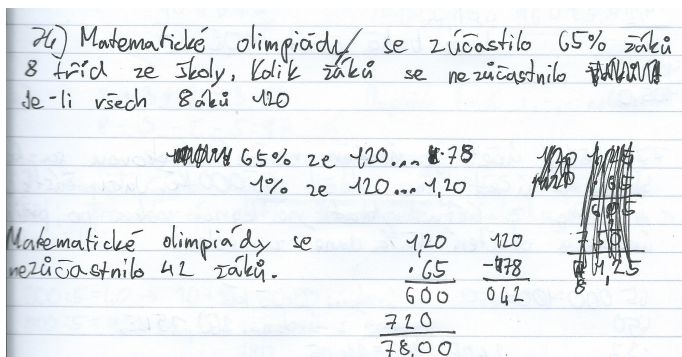 24) Matematické olimpiády se zúčastnilo 65% žáků
8 tříd ze školy. Kolik žáků se nezúčastnilo
Je-li všech 8áků 120
65% ze 120... 78
1% ze 120... 1,20
Matematické olimpiády se
nezúčastnilo 42 žáků.
1,20 120
.65 -78
600 042
720
78,00